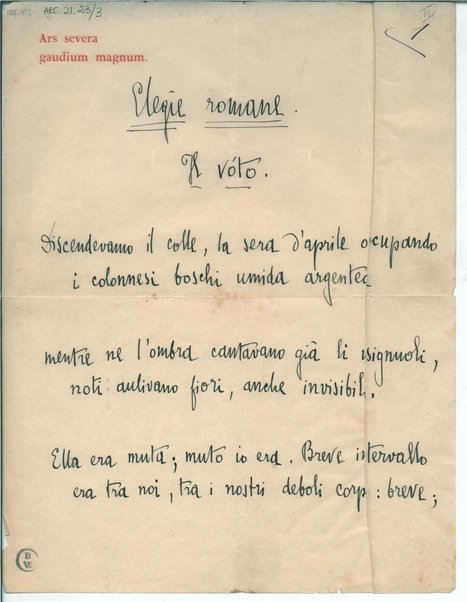 ARC. 21. 23/3
Ars severa
gaudium magnum.
1
Elegie romane.
Il vóto.
Discendevamo il colle, la sera d'aprile occupando
i colonnesi boschi umida argentea
mentre ne l'ombra cantavano già li usignuoli,
noti aulivano fiori, anche invisibili.
Ella era muta; muto io era. Breve intervallo
era tra noi, tra i nostri deboli corpi: breve;
B
VE